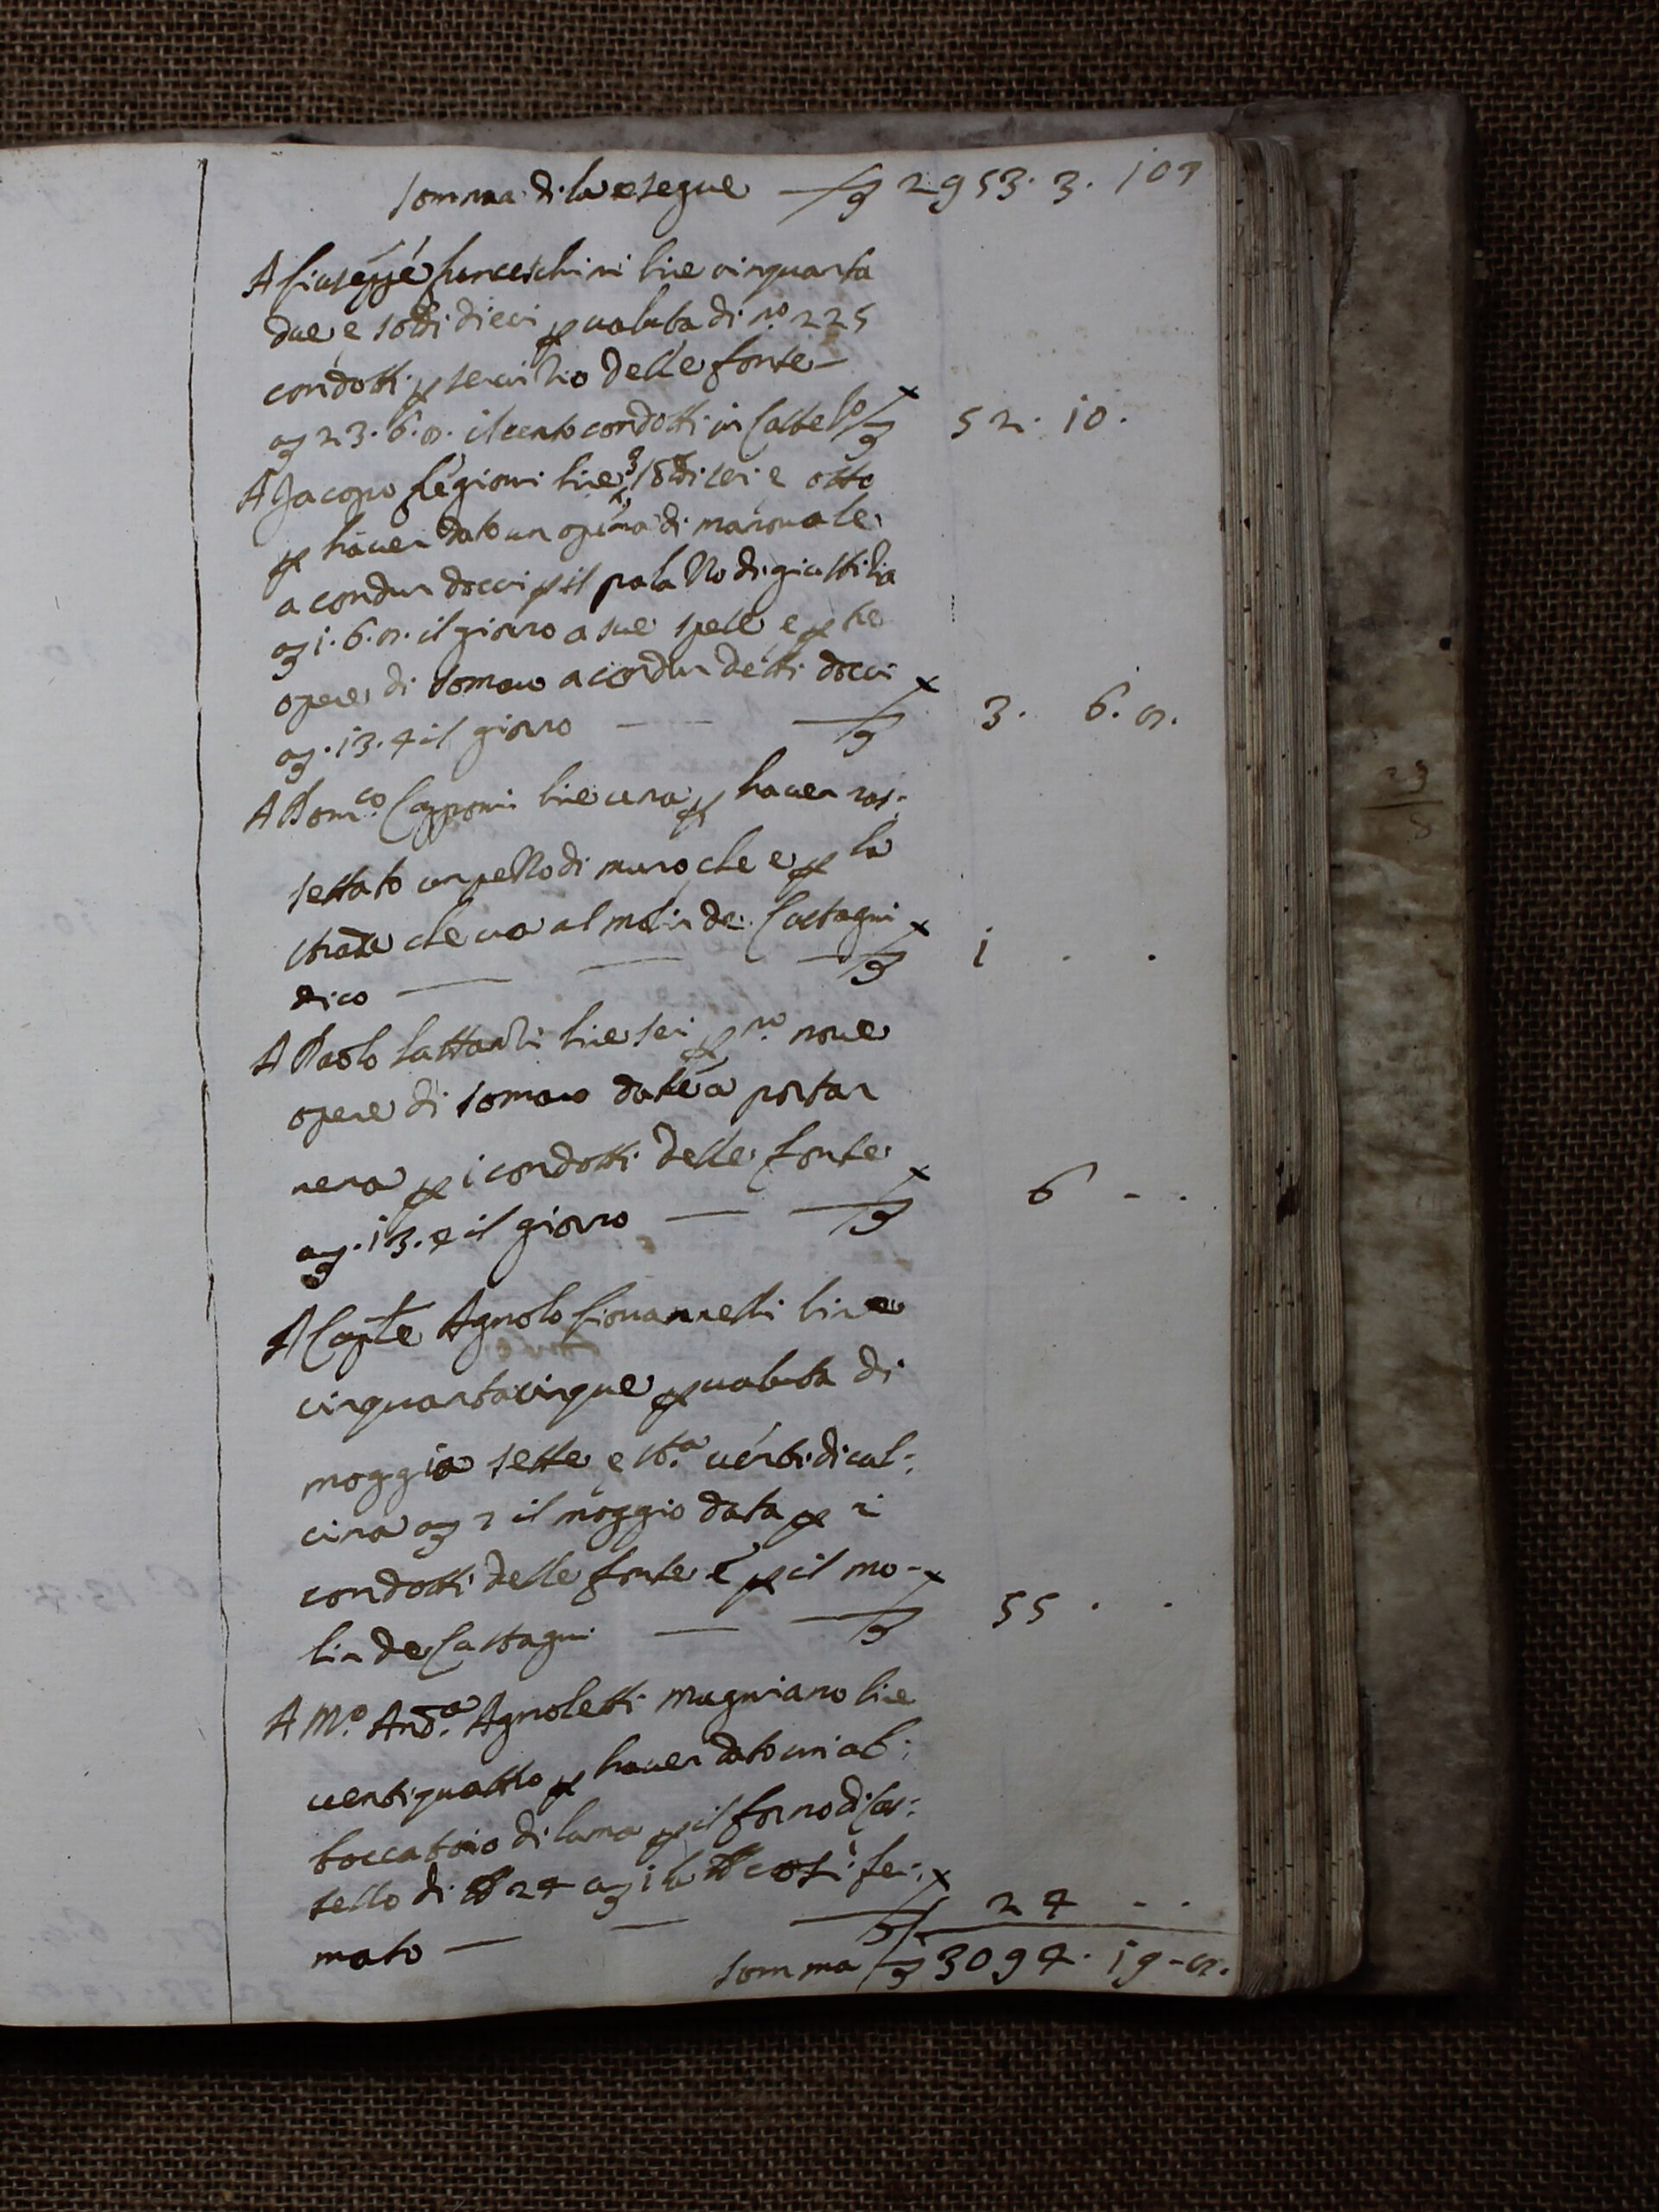 somma di la e segue £ 2953. 3. 107
A Giuseppe Franceschini lire cinquanta
due e soldi dieci p valuta di n.º 225
condotti p servitio delle fonte
a £ 23. 6. 8. il cento condotti in Castello £ 52. 10.
A Jacopo Regioni lire 3 soldi sei e otto
p haver dato un opera di manovale
a condur docci p il palazzo di giustitia
a £ 1. 6. 8. il giorno a sue spese e p tre
opere di somaro a condur detti docci
a £. 13. 4 il giorno £ 3. 6. 8.
A Dom.co Capponi lire una p haver ras:
settato un pezzo di muro che e p la
strada che va al molin de Castagni
dico £ 1 . .
A Paolo Lattanzi lire sei p n.º nove
opere di somaro date a portar
rena p i condotti delle fonte
a £. 13. 4 il giorno £ 6 - .
A Cap.te Agnolo Giovannelli lire
cinquantacinque p valuta di
moggia sette e st.a venti di cal:
cina a £ 7 il moggio data p i
condotti delle fonte e p il mo-
lin de Castagni £ 55 . .
A M.º And.a Agnoletti Magniano lire
ventiquattro p haver dato un ab:
boccatoio di lama p il forno di Cas:
tello di lb 24 a £ 1 la lb cosi fer:
mato £ 24 - .
somma £ 3094. 19 - 8.
29
5